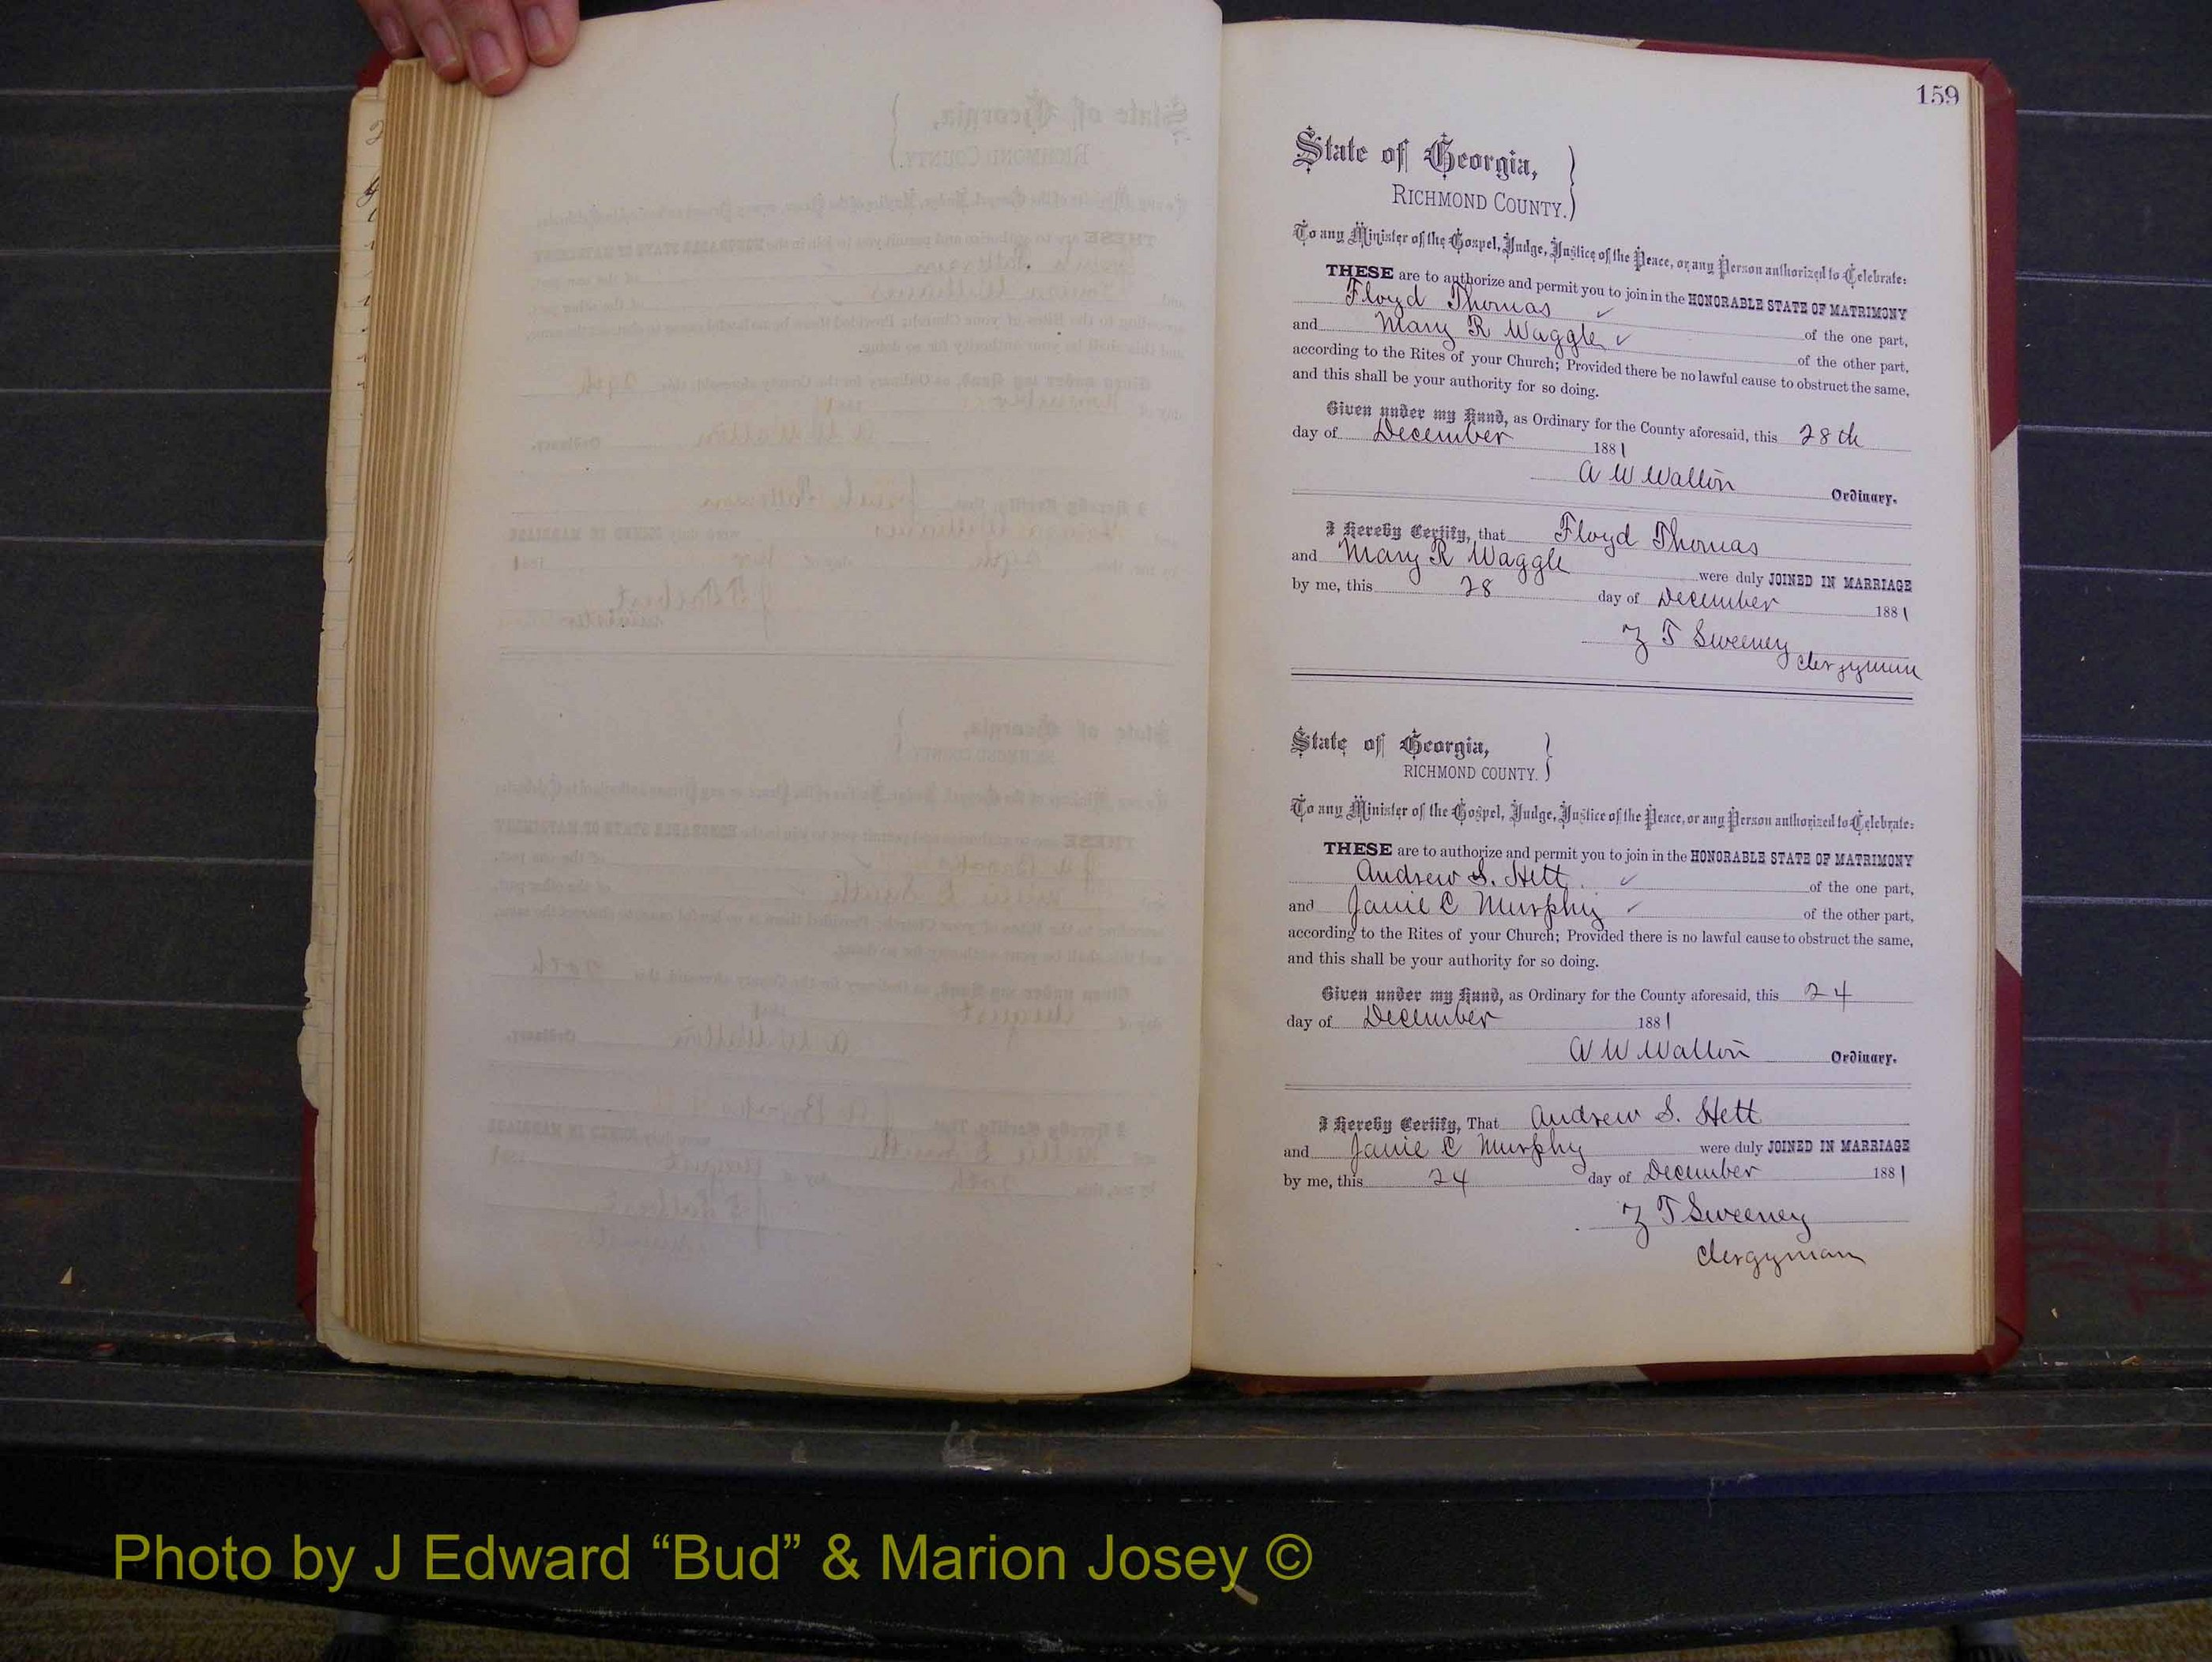 159
State of Georgia,
RICHMOND COUNTY.
To any Minister of the Gospel, Judge, Justice of the Peace, or any Person authorized to Celebrate:
THESE are to authorize and permit you to join in the HONORABLE STATE OF MATRIMONY
Floyd Thomas ✓ of the one part,
and Mary R Waggle ✓ of the other part,
according to the Rites of your Church; Provided there be no lawful cause to obstruct the same,
and this shall be your authority for so doing.
Given under my Hand, as Ordinary for the County aforesaid, this 28th
day of December 1881
A W Walton Ordinary.
I Hereby Certify, that Floyd Thomas
and Mary R Waggle were duly JOINED IN MARRIAGE
by me, this 28 day of December 1881
Z T Sweeney
Clergyman
State of Georgia,
RICHMOND COUNTY.
To any Minister of the Gospel, Judge, Justice of the Peace, or any Person authorized to Celebrate:
THESE are to authorize and permit you to join in the HONORABLE STATE OF MATRIMONY
Andrew S. Hett ✓ of the one part,
and Janie C Murphy ✓ of the other part,
according to the Rites of your Church; Provided there is no lawful cause to obstruct the same,
and this shall be your authority for so doing.
Given under my Hand, as Ordinary for the County aforesaid, this 24
day of December 1881
A W Walton Ordinary.
I Hereby Certify, That Andrew S. Hett
and Janie C Murphy were duly JOINED IN MARRIAGE
by me, this 24 day of December 1881
Z T Sweeney
Clergyman
Photo by J Edward “Bud” & Marion Josey ©